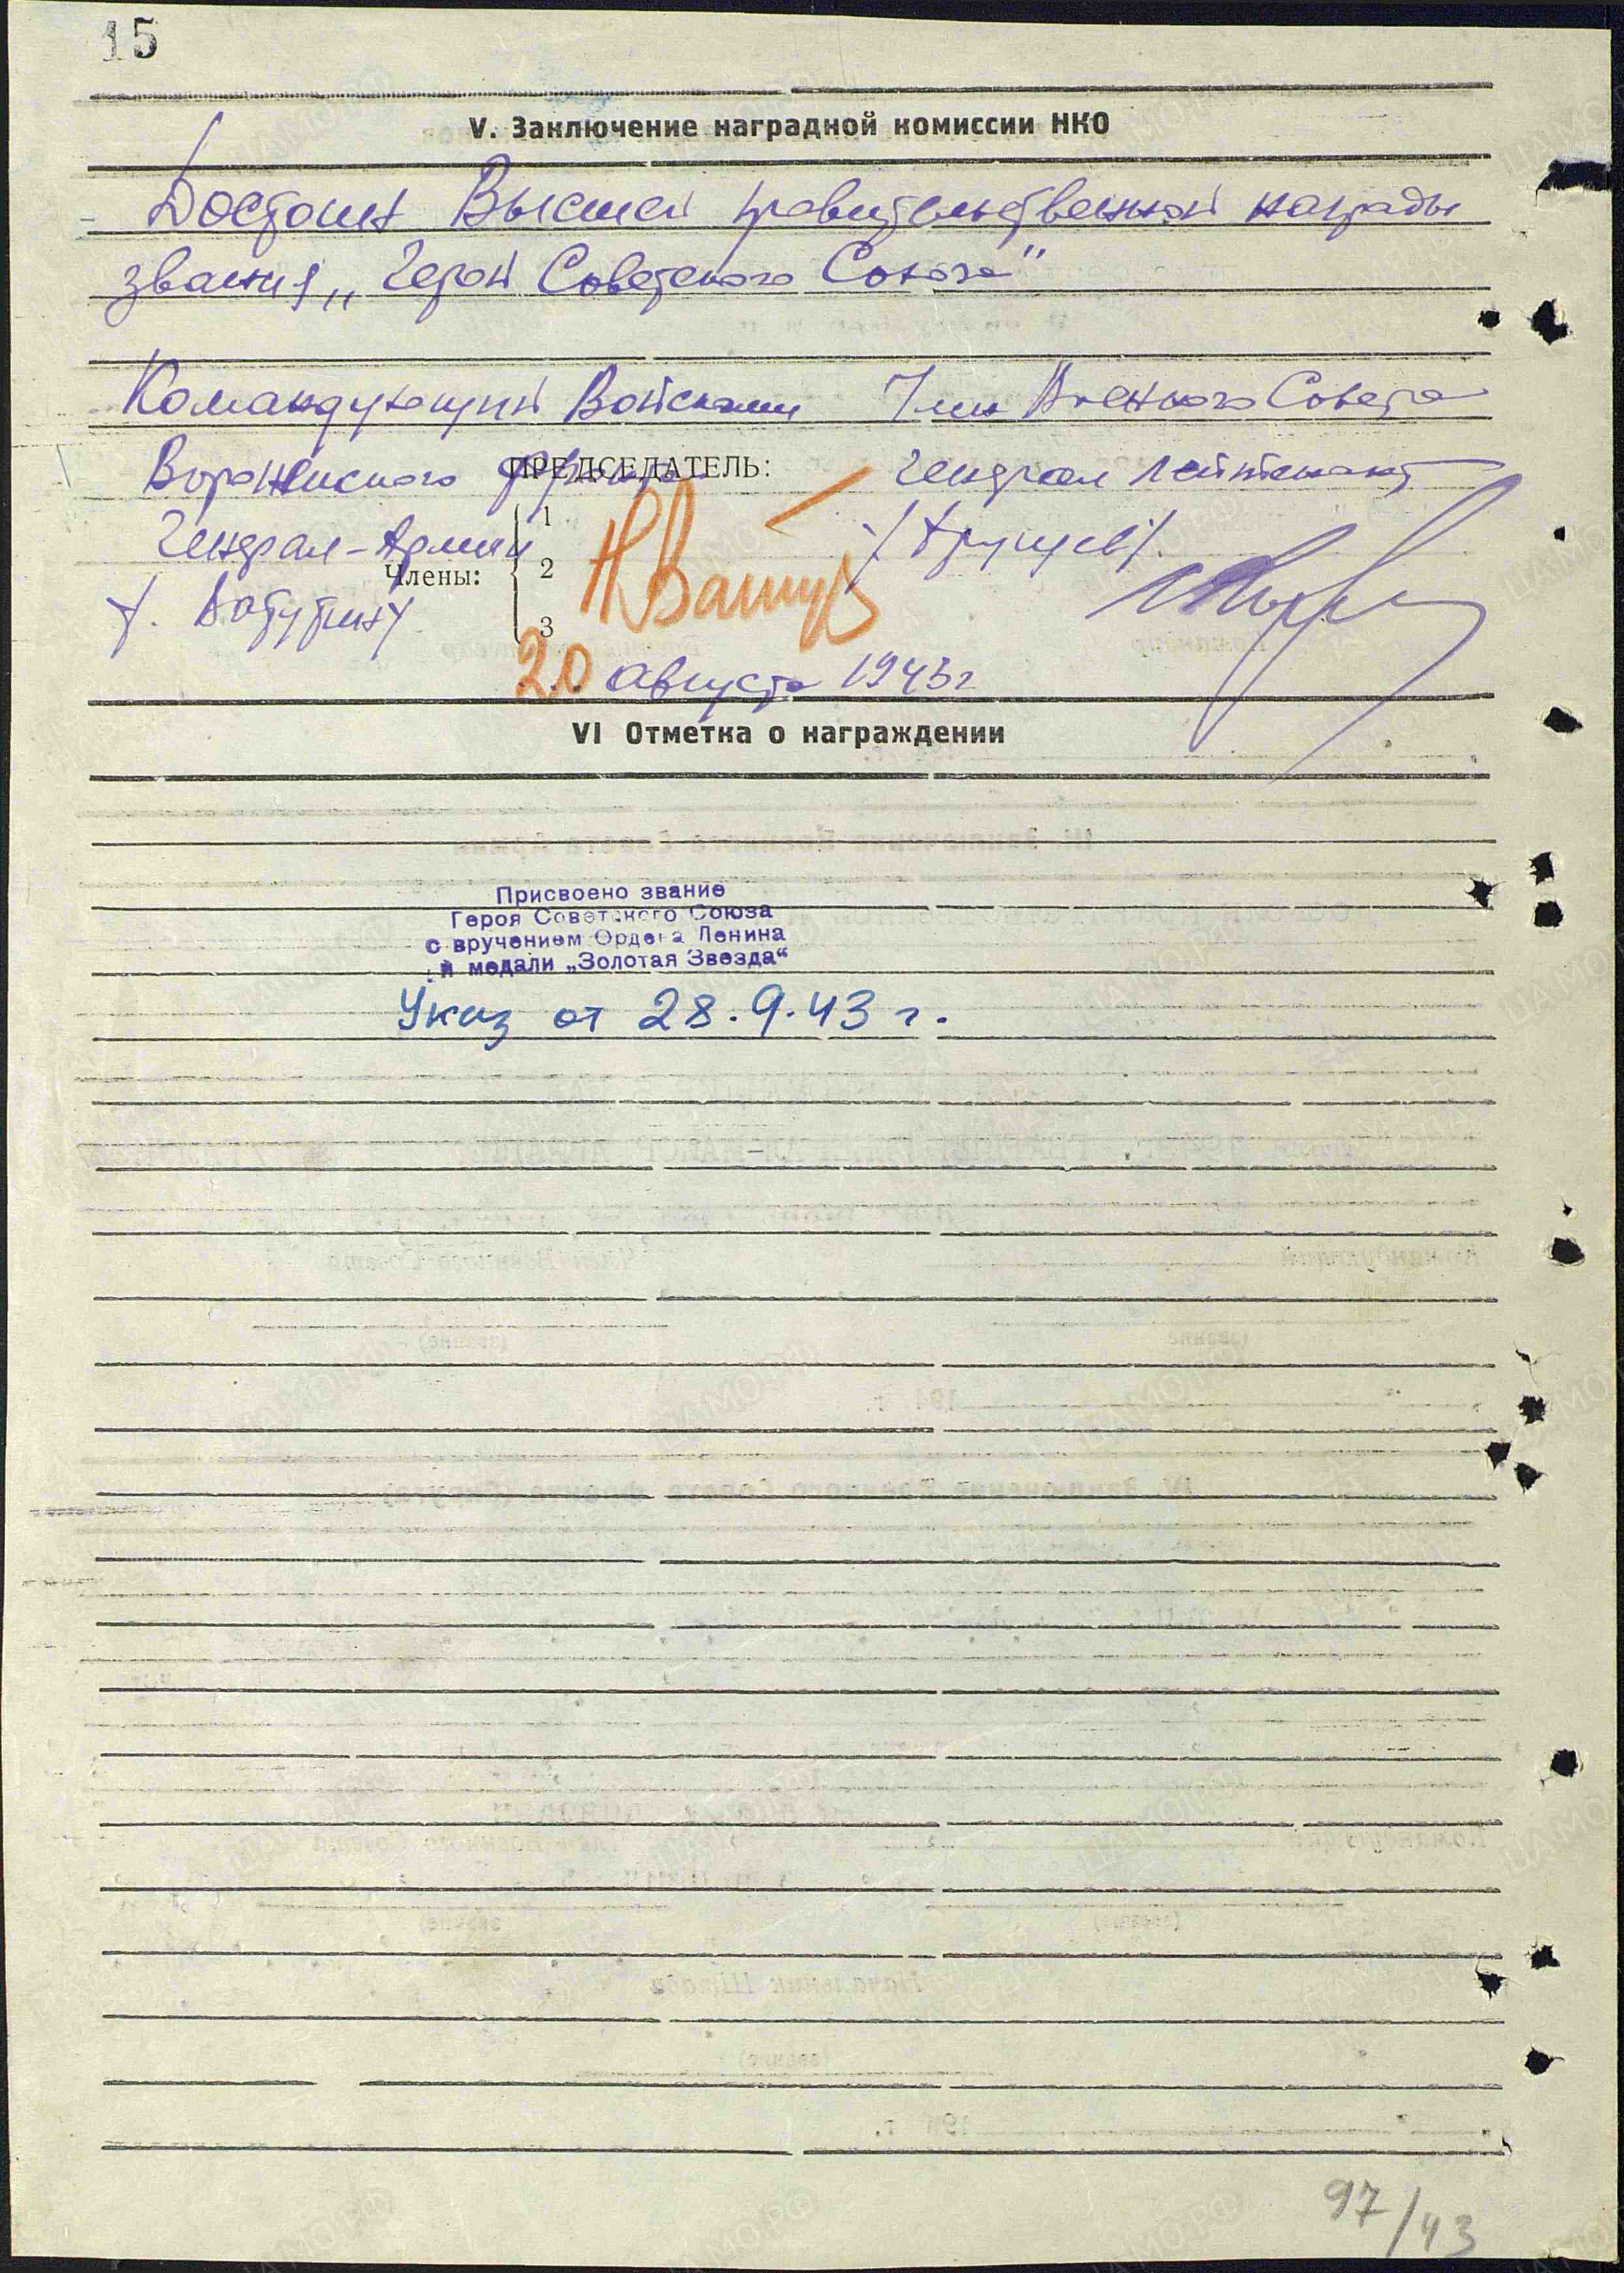 15
V. Заключение наградной комиссии НКО
Достоин Высшей правительственной награды
звания „Герой Советского Союза"
Командующий Войсками Член Военного Совета
Воронежского фронта ПРЕДСЕДАТЕЛЬ: Генерал Лейтенант
Генерал-Армии 1 /Хрущев/.
Члены: 2 НВатут
/. Ватутин/ 3
20 августа 1943г
VI Отметка о награждении
Присвоено звание
Героя Советского Союза
с вручением Ордена Ленина
и медали „Золотая Звезда“
Указ от 28.9.43 г.
97/43